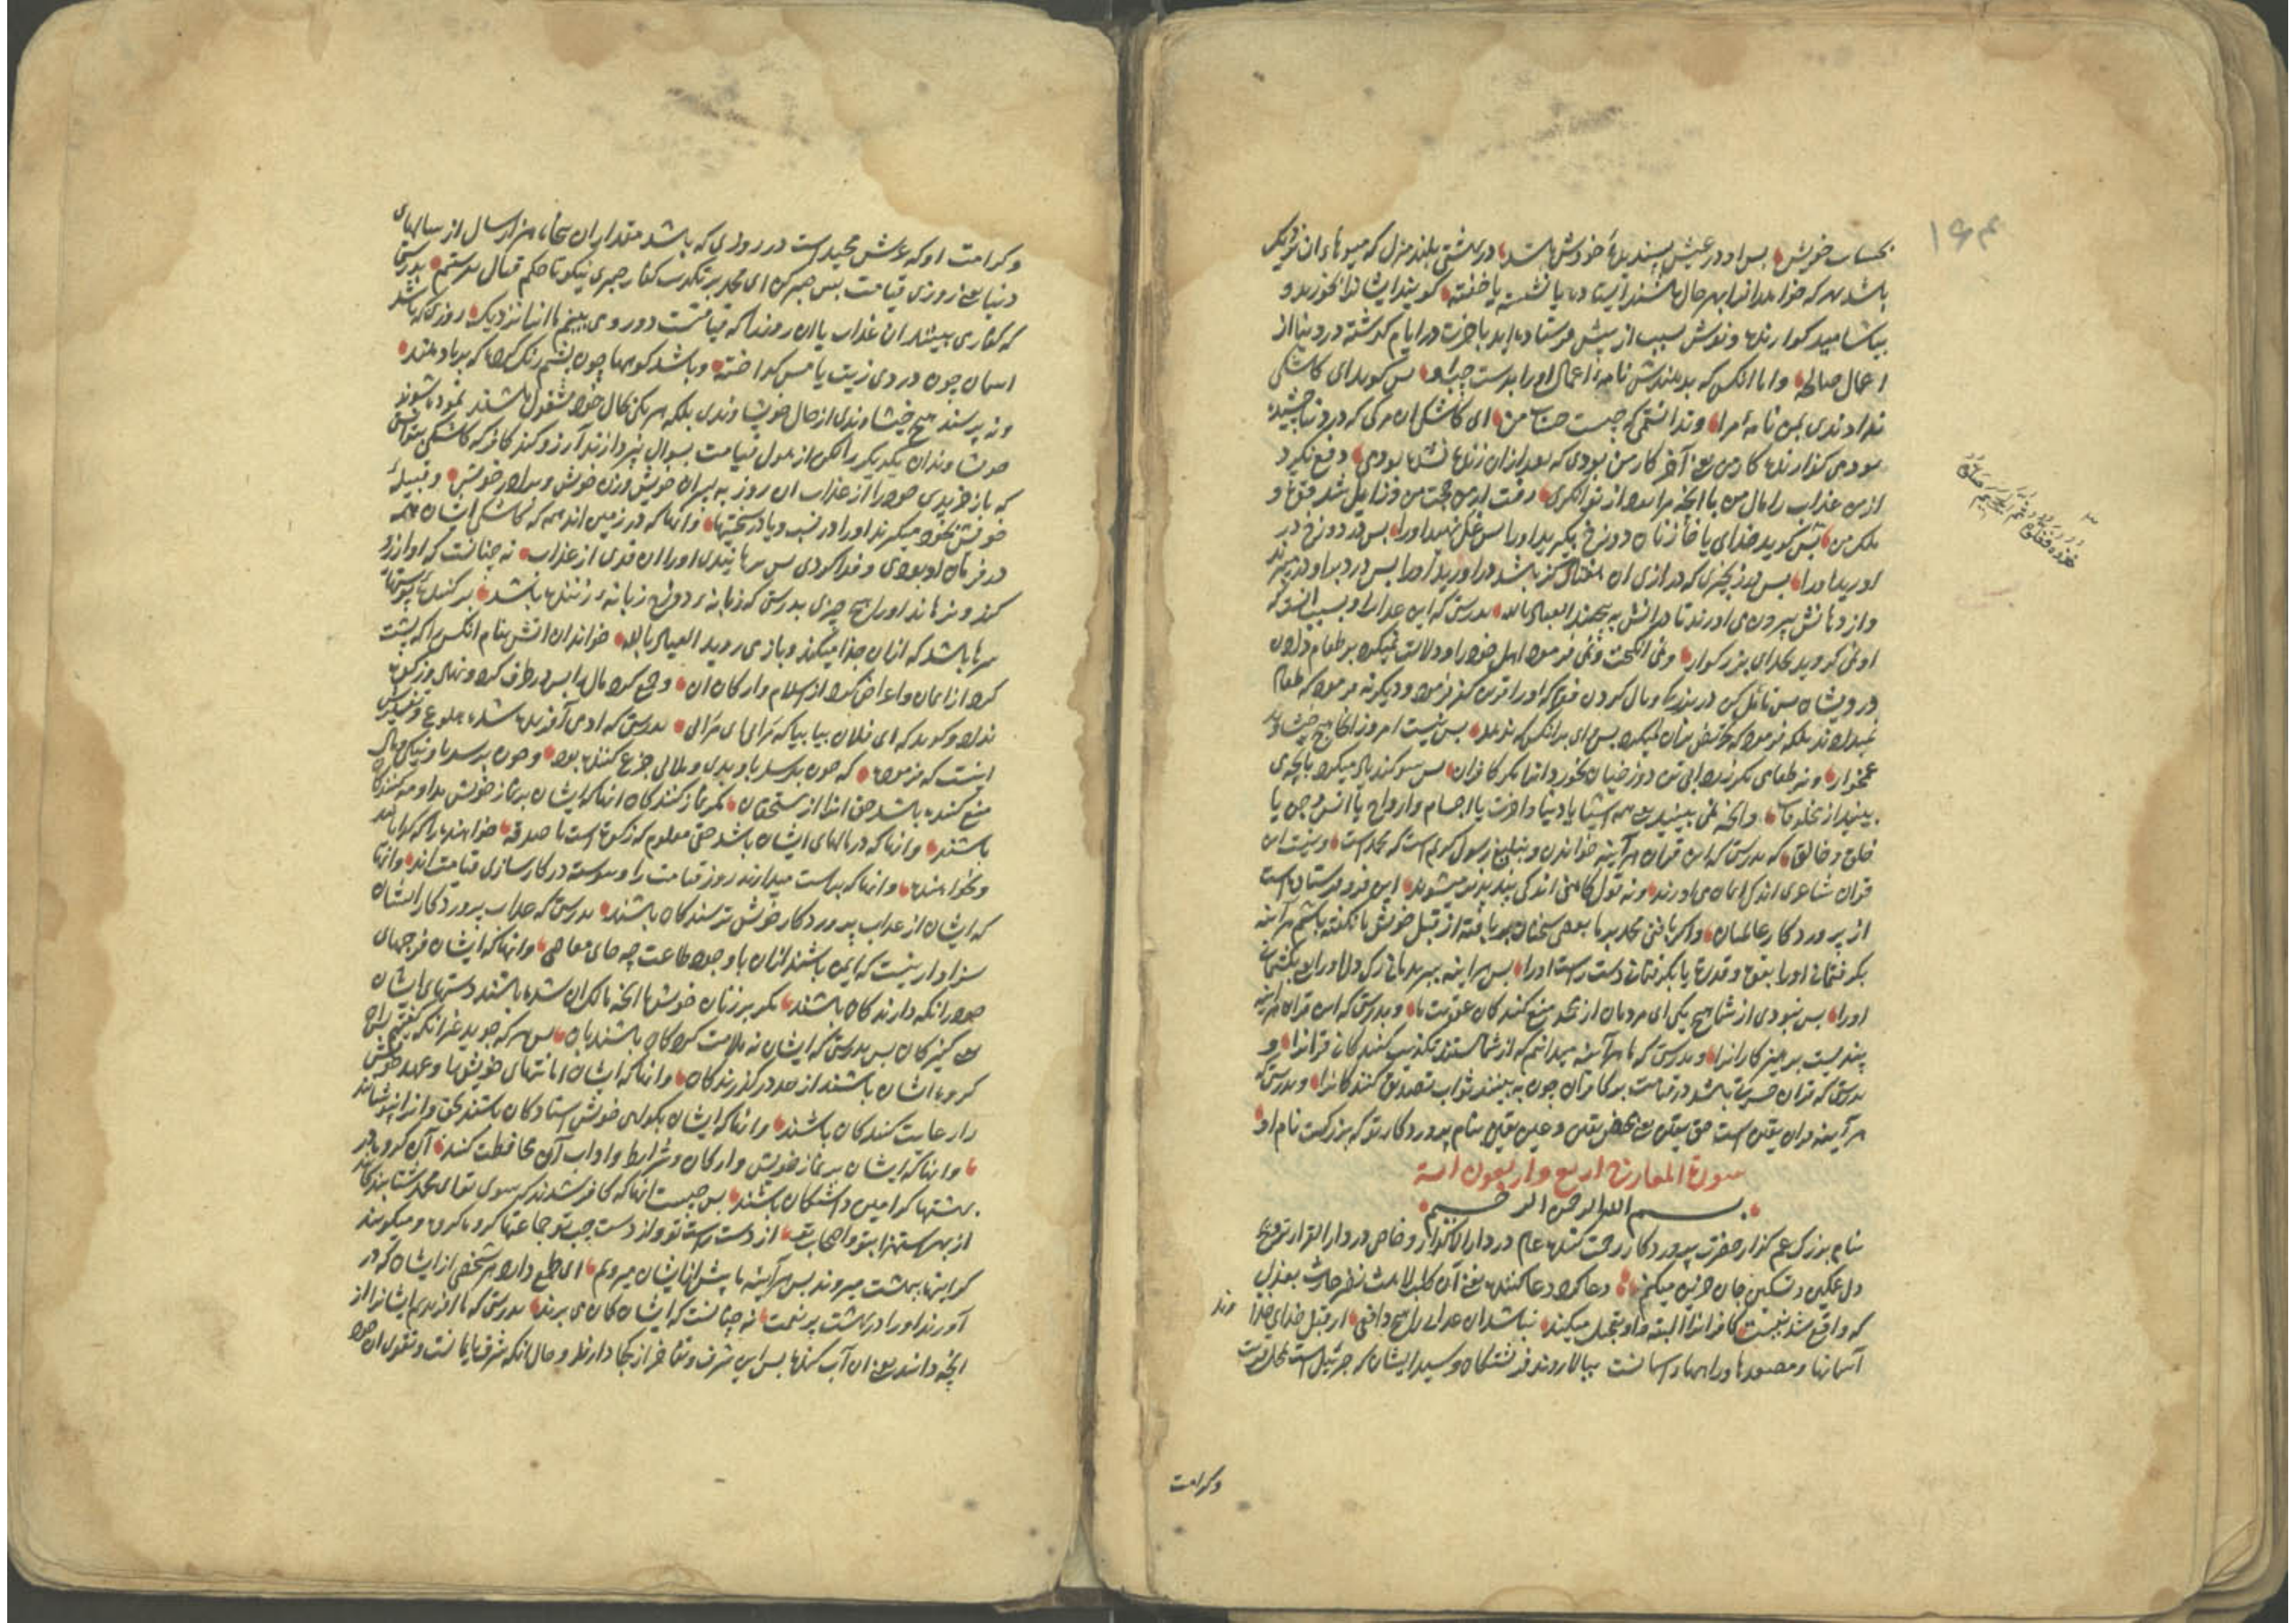 بحساب خویش پس او در عیش پسندیدهٔ خودش باشد در بهشتی بلند منزل که میوهاء آن نزدیک
باشد هر که خواهد آنرا بهر حال باشند ایستاده یا نشسته یا خفته گویند ایشانرا بخورید و
بیاشامید گوارنده و نوش بسبب از پیش فرستاده اید بآخرت در ایام گذشته در دنیا از
اعمال صالحه و اما آنکس که بدهندش نامهٔ اعمال او را بدست چپ او پس گوید ای کاشکی
ندادندی بمن نامهٔ مرا و ندانستمی که چیست حساب من ای کاشکی آن مرگی که در دنیا چشیده
بودمی گذارنده کار من یعنی آخر کار من بودی که بعد از آن زنده نشده بودمی دفع نکرد
از من عذاب را مال من یا آنچه مرا بود از توانگری رفت از من حجت من و زایل شد قوت و
ملک من پس گوید خدای با خازنان دوزخ بگیرید او را پس غل نهید او را پس در دوزخ در
آورید او را پس در زنجیری که درازی آن هفتاد گز باشد در آورید او را پس در دبر او در برند
و از دهانش بیرون می آورند تا در آتش نجهد العیاذ بالله بدرستی که این عذاب او بسبب آنست که
او نمی گروید بخدای بزرگوار و نمی انگیخت و نمی فرمود اهل خود را و دلالت نمیکرد بر طعام دادن
درویشان
غمخوار و نه طعامی مگر زرداب تن دوزخیان نخورد آنرا مگر کافران پس سوگند یاد میکرد بآنچه می
بینید از مخلوقات و آنچه نمی بینید یعنی همه اشیا یا دنیا و آخرت یا اجسام و ارواح یا انس و جن یا
خلق و خالق که بدرستی که این قرآن هر آینه خواندن و تبلیغ رسول کریم است که محمد است و نیست این
قرآن شاعری اندکی ایمان می آورند و نه قول کاهنی اندکی پند پذیر میشوید این فرو فرستاده است
از پروردگار عالمیان و اگر بافتی محمد بر ما بعضی سخنان بر بافته از قبل خویش نا گفته باشم هر آینه
بگرفتمانی او را بقوت و قدرت یا بگرفتمانی دست راست او را پس هر آینه ببریدمانی رگ دل او را و بکشتمان
او را پس نبودی از شما هیچ یکی ای مردمان از محمد منع کنندگان عقوبت ما و بدرستی که این قرآن هر آینه
پندیست پرهیزکارانرا و بدرستی که ما هر آینه میدانیم که از شما هستند تکذیب کنندگان قرآنرا و
بدرستی که قرآن حسرت باشد در قیامت بر کافران چون به بینند ثواب تصدیق کنندگانرا و بدرستی که
هر آینه قرآن یقین است حق یقین یعنی محض یقین و عین یقین بنام پروردگار تو که بزرگست نام او
سورة المعارج اربع و اربعون آیة
بسم الله الرحمن الرحیم
بنام بزرگ غم گذار حضرت پروردگار رحمت کننده عام در دار الاکدار و خاص در دار القرار ترویح
دل غمگین و تسکین جان حزین میکنم دعا کرد دعا کننده یعنی آن طلب لامت نضر حارث بعذابی
که واقع شدنیست کافرانرا البته و او تعجیل میکند نباشد آن عذاب را هیچ دافعی از قبل خدای خداوند
آسمانها و مصعدها و راهها بآسمانست ببالا روند فرشتگان و سید ایشان که جبرئیل است بمحل قربت
و کرامت
و کرامت او که عرش مجید است در روزی که باشد مقدار آن پنجاه هزار سال از سالهای
دنیا یعنی روزی قیامت پس صبر کن ای محمد بر تکذیب کفار صبری نیکو تا حکم قتال بفرستیم بدرستی
که کفار می بینند آن عذاب یا آن روز را که قیامت دور و می بینیم ما آنرا نزدیک روزی که باشد
آسمان چون دردی زیت یا مس گداخته و باشد کوهها چون پشم رنگ کرده که بر باد دهند
و نه پرسند هیچ خویشاوندی از حال خویشاوندی بلکه هر یکی بحال خود مشغول باشند نموده شوند
خویشاوندان یکدیگر را لکن از هول قیامت بسوال نپردازند آرزو کند کافر که کاشکی بتوانستی
که باز خریدی خود را از عذاب آن روز به پسران خویش و زن خویش و برادر خویش و قبیلهٔ
خویش
در فرمان او بودی و فدا کردی پس رهانیدی او را آن فدی از عذاب نه چنانست که او آرزو
کند و نرهاند او را هیچ چیزی بدرستی که زبانهٔ دوزخ زبانهٔ زننده باشد بر کنندهٔ پوستهای
سرها باشد که از آن جدا میکند و باز می روید العیاذ بالله خواند آن آتش بنام آنکس را که پشت
کرد از ایمان و اعراض کرد از اسلام و ارکان آن و جمع کرد مال را پس در ظرف کرد و نهاد و زکوة
نداد و گوید که ای فلان بیا بیا که مرایی مرایی بدرستی که آدمی آفریده شده هلوع و تفسیرش
اینست که فرموده که چون برسد باو بدی و بلائی جزع کننده بود و چون برسد باو نیکی و مال
منع کننده باشد حق آنرا از مستحقان مگر نماز کنندگان آنها که ایشان بر نماز خویش مداومت کنندگان
باشند و آنها که در مالهای ایشان باشد حقی معلوم که زکوة است یا صدقه خواهنده را که گدا باشد
و نخواهنده و آنها که براست میدارند روز قیامت را و پیوسته در کارسازی قیامت اند و آنها
که ایشان از عذاب پروردگار خویش ترسندگان باشند بدرستی که عذاب پروردگار ایشان
سزاوار نیست که ایمن باشند از آن با وجود طاعت چه جای معاصی و آنها که ایشان فرجهای
خود را نگه دارندگان باشند مگر بر زنان خویش یا آنچه مالک آن شده باشند دستهای ایشان
یعنی کنیزکان پس بدرستی که ایشان نه ملامت کردگان باشند بآن پس هر که جوید غیر آنکه گفتیم پس آن
گروه ایشان باشند از حد درگذرندگان و آنها که ایشان امانتهای خویش را و عهد خویش
را رعایت کنندگان باشند و آنها که ایشان بگواهی خویش استادگان باشند بحق و آنرا نپوشانند
و آنها که ایشان بر نماز خویش و ارکان و شرایط و آداب آن محافظت کنند آن گروه باشند در
بهشتها گرامی داشتگان باشند پس چیست آنها که کافر شدند که بسوی تو ای محمد شتابندگانند
از بهر استهزا بتو و اصحاب تو از دست راست تو و از دست چپ تو جماعتها گروه گروه و میگویند
که اینها ببهشت میروند پس هر آینه ما پیش از ایشان میرویم ای طمع دارد هر شخصی از ایشان که در
آورند او را در بهشت پر نعمت نه چنانست که ایشان گمان می برند بدرستی که ما آفریدیم ایشانرا از
آنچه دانند یعنی آن آب گنده پس این شرف و تفاخر از کجا دارند و حال آنکه شرف بایمانست و تقوی